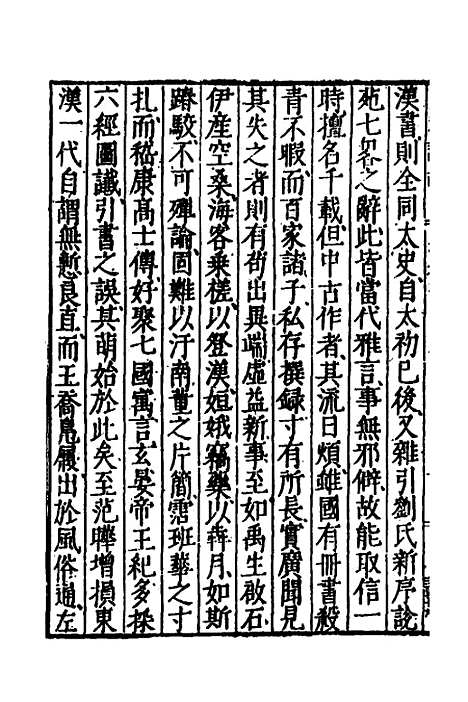 漢書則全同太史自太初已後又雜引劉氏新序說
苑七畧之辭此皆當代雅言事無邪僻故能取信一
時擅名千載但中古作者其流日煩雖國有冊書殺
青不暇而百家諸子私存撰録寸有所長實廣聞見
其失之者則有苟出異端虛益新事至如禹生啟石
伊産空桑海客乗槎以登漢姮娥竊藥以奔月如斯
踳駮不可殫論固難以汙南董之片簡霑班華之寸
扎而嵇康髙士傳好聚七國寓言玄晏帝王紀多採
六經圖讖引書之誤其萌始於此矣至范曄增損東
漢一代自謂無慙良直而王喬鳬履出於風俗通左